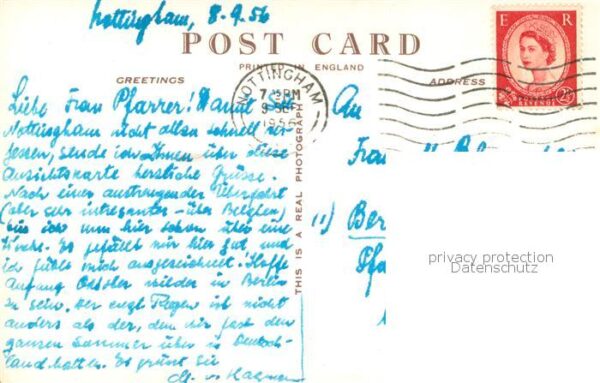 Nottingham, 8.9.56
POST CARD
PRINTED IN ENGLAND
GREETINGS
ADDRESS
E R
POSTAGE
REVENUE
2½D
NOTTINGHAM
7 PM
9 SEP
1956
THIS IS A REAL PHOTOGRAPH
Liebe Frau Pfarrer! Damit
Nottingham nicht allzu schnell ver-
gessen, sende ich Ihnen über diese
Ansichtskarte herzliche Grüsse.
Nach einer anstrengender Überfahrt
(aber sehr intressanter - über Belgien)
bin ich nun hier schon über eine
Woche. Es gefällt mir hier gut und
ich fühle mich ausgezeichnet! Hoffe
Anfang October wieder in Berlin
zu sein. Der engl. Regen ist nicht
anders als der, den wir fast den
ganzen Sommer über in Deutsch-
land hatten. Es grüsst Sie
An
Frau
11) Ber
Pfa
privacy protection
Datenschutz